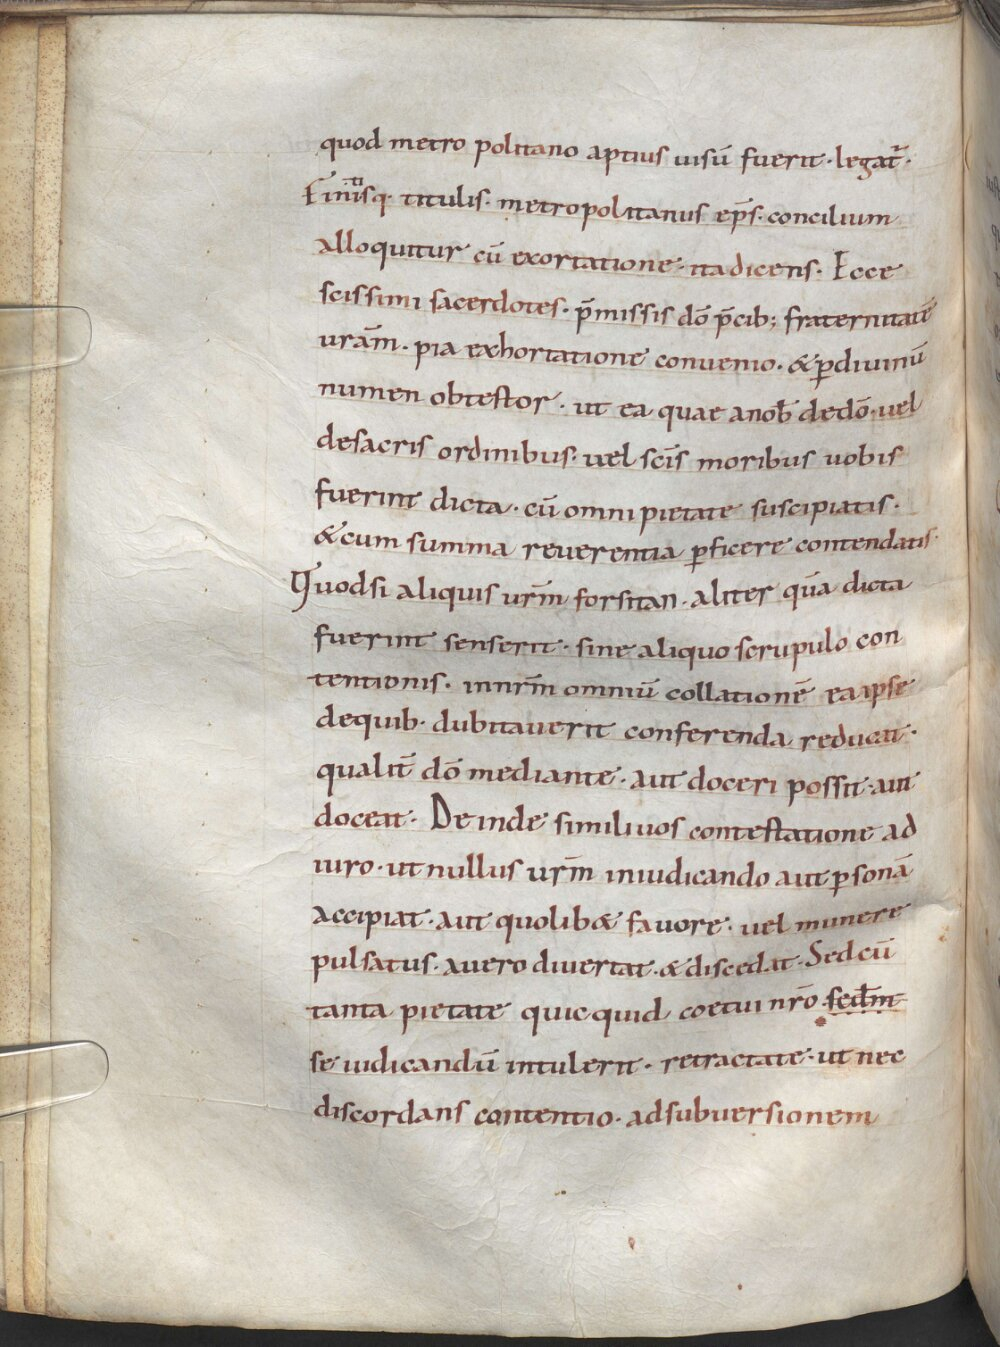 quod metro politano aptius uisū fuerit · legat̄ ·
Finitisq· titulis · metropolitanus ep̄s · concilium
alloquitur cū exortatione · ita dicens · Ecce
sc̄issimi sacerdotes · p̄missis dō p̄cib; fraternitatē
ur̄am · pia exhortatione conuenio · & ꝑdiuinū
numen obtestor · ut ea quae anob̄ dedō · uel
desacris ordinibus · uel sc̄is moribus uobis
fuerint dicta · cū omni pietate suscipiatis ·
& cum summa reuerentia ꝑficere contendatis ·
Quodsi aliquis ur̄m forsitan · aliter quā dicta
fuerint senserit · sine aliquo scrupulo con
tentionis · innr̄m omniū collationē ea ipse
dequib· dubitauerit conferenda reducat ·
qualit̄ dō mediante · aut doceri possit · aut
doceat · Deinde simili uos contestatione ad
iuro · ut nullus ur̄m iniudicando aut ꝑsonā
accipiat · aut quolib& fauore · uel munere
pulsatus · auero diuertat · & discedat · Sed cū
tanta pietate quicquid coetui nr̄o
se iudicandū intulerit · retractate · ut nec
discordans contentio · adsubuersionem